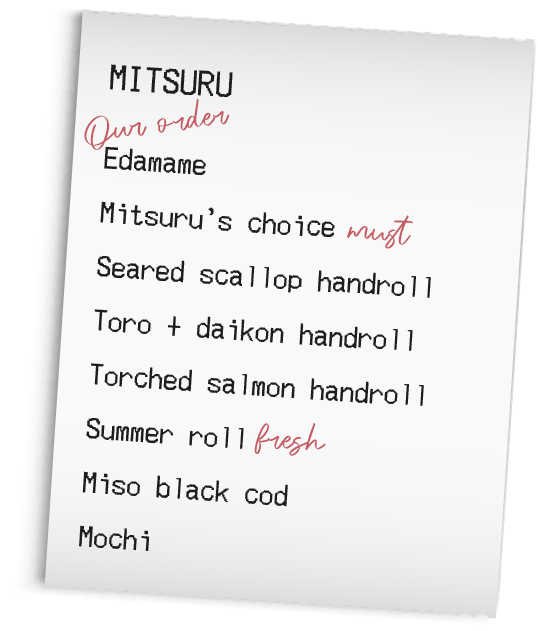 MITSURU
Our order
Edamame
Mitsuru's choice must
Seared scallop handroll
Toro + daikon handroll
Torched salmon handroll
Summer roll fresh
Miso black cod
Mochi